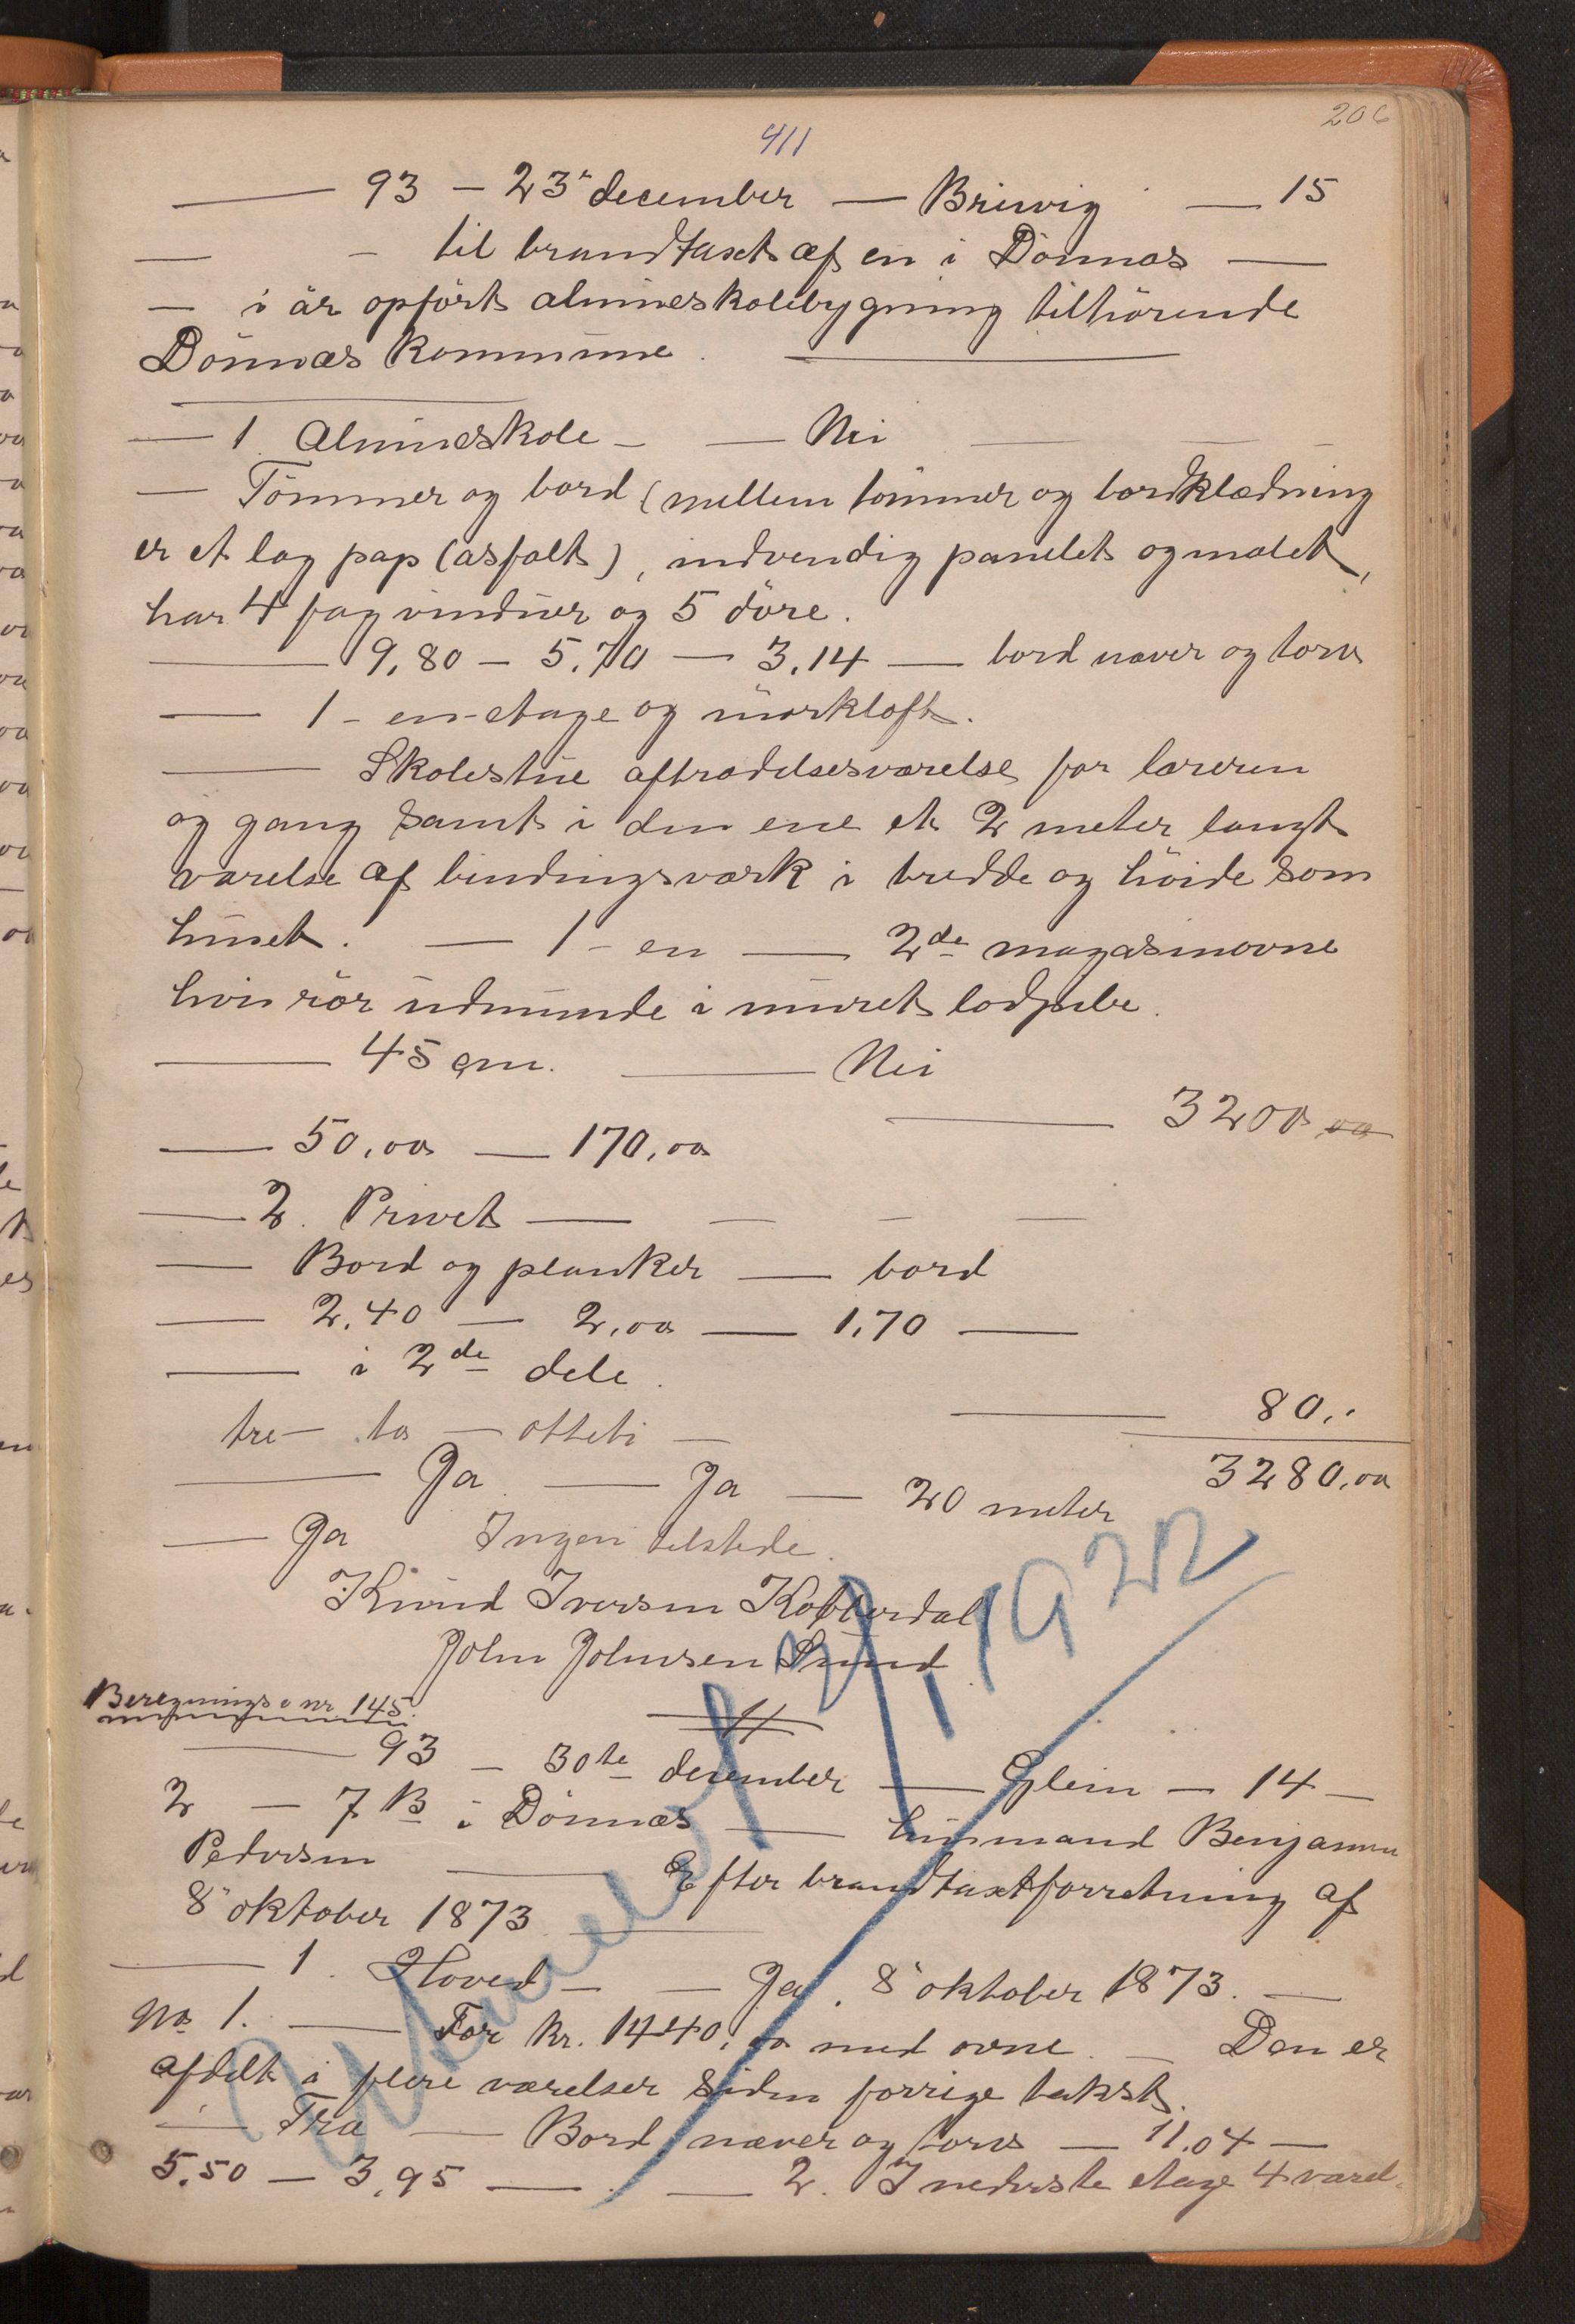 206
411
— 93 — 23' december — Breivig — 15
— – til brandtaxt af en i Dönnæs —
— i år opfört almueskolebygning tilhörende
Dönnæs kommune. —
— 1. Almueskole – — Nei — — –
— Tömmer og bord (mellem tömmer og bordklædning
er et lag pap (asfalt), indvendig panelet og malet,
har 4 fag vinduer og 5 döre.
— 9,80 — 5,70 — 3,14 — bord næver og torv
— 1 – en – etage og mörkloft.
— Skolestue aftrædelsesværelse for læreren
og gang samt i den ene et 2 meter langt
værelse af bindingsværk i bredde og höide som
huset. — 1 – en — 2de magasinovne
hvis rör udmunde i muret lodpibe.
— 45 cm. — Nei
— 3200 oo
— 50,oo — 170,oo
— 2. Privet — — – —
— Bord og planker — bord
— 2,40 — 2,oo — 1,70 —
— i 2de dele.
— 80,..
tre – to – otteti –
3280,oo
— Ja. — Ja — 20 meter
— Ja Ingen tilstede.
Knud Iversen Kobberdal
John Johnsen Sund
Beregnings nr 145.
— 93 — 30te desember — Glein — 14 —
2 — 7 B i Dönnæs — husmand Benjamin
Pedersen — Efter brandtaxtforretning af
8' oktober 1873 —
— 1. Hoved – — Ja. 8' oktober 1873. —
No 1. — For kr. 1440,oo med ovne. — Den er
afdelt i flere værelser siden forrige takst.
— Træ — Bord næver og torv — 11.04 —
5.50 — 3,95 — . — 2. I nederste etage 4 værel-
1922